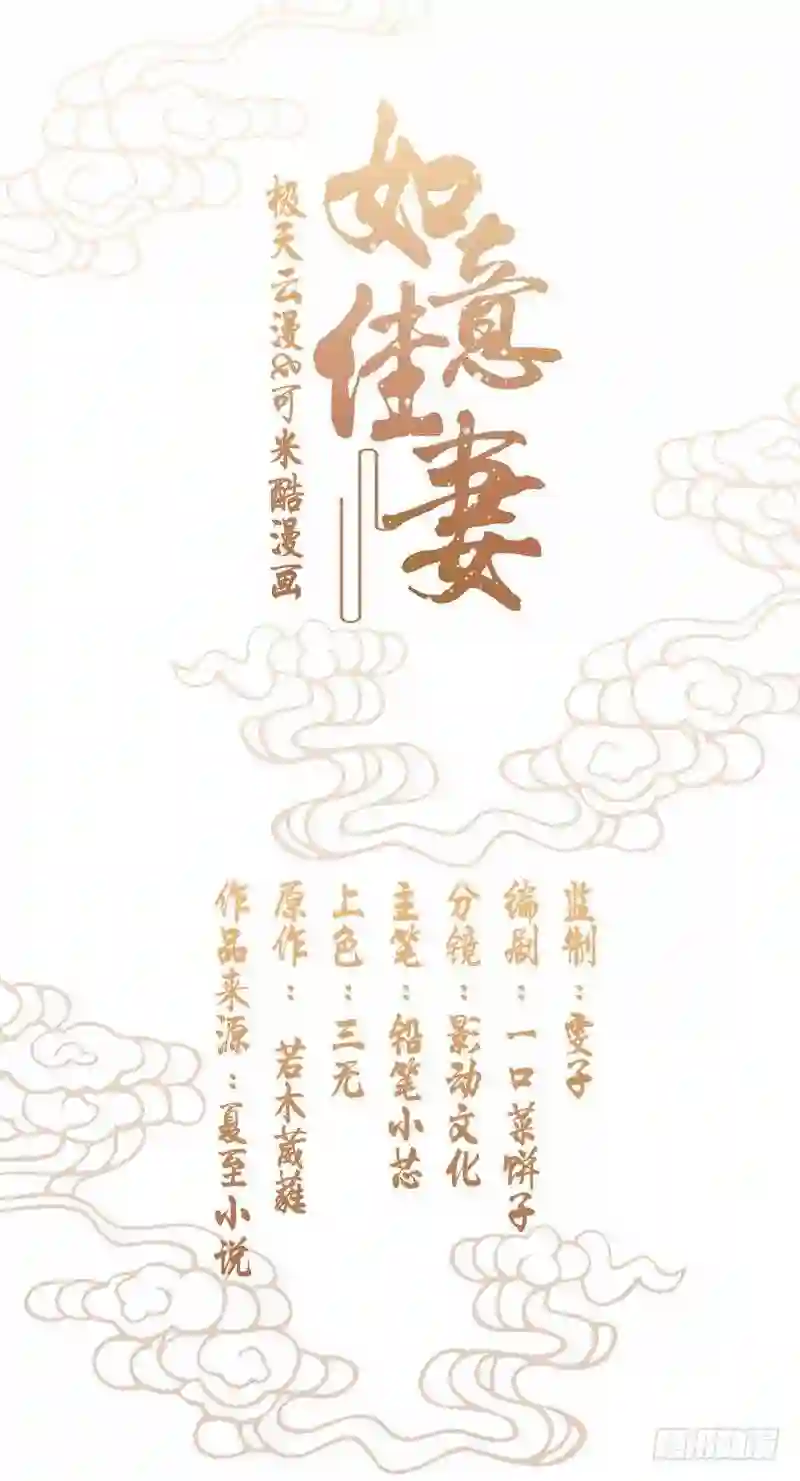 如意佳妻
极天云漫&可米酷漫画
监制：雯子
编剧：一口菜饼子
分镜：影动文化
主笔：铅笔小芯
上色：三无
原作：若木葳蕤
作品来源：夏至小说